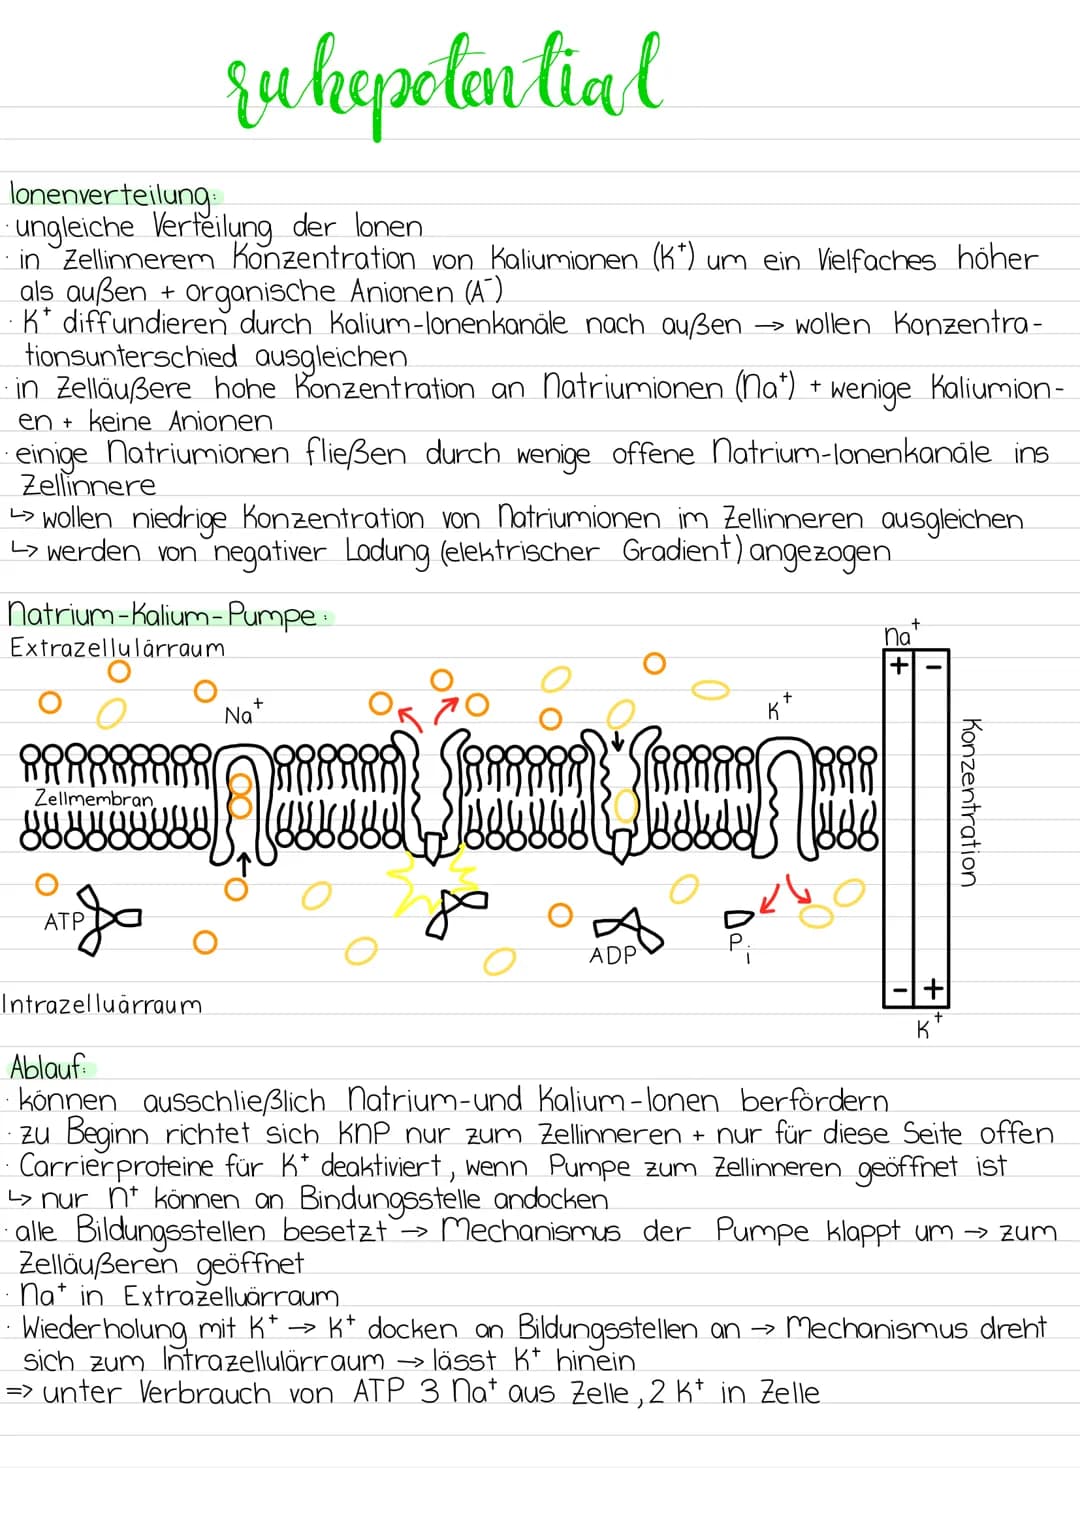 ruhepotential
Ionenverteilung:
· ungleiche Verteilung der Ionen
· in Zellinnerem Konzentration von Kaliumionen (K⁺) um ein Vielfaches höher
als außen + organische Anionen (A⁻)
· K⁺ diffundieren durch Kalium-Ionenkanäle nach außen → wollen Konzentra-
tionsunterschied ausgleichen
· in Zelläußere hohe Konzentration an Natriumionen (Na⁺) + wenige Kaliumion-
en + keine Anionen
· einige Natriumionen fließen durch wenige offene Natrium-Ionenkanäle ins
Zellinnere
↳ wollen niedrige Konzentration von Natriumionen im Zellinneren ausgleichen
↳ werden von negativer Ladung (elektrischer Gradient) angezogen
Natrium-Kalium-Pumpe:
Extrazellulärraum
Na⁺
K⁺
Na⁺
+ -
Konzentration
Zellmembran
ATP
ADP
Pi
- +
K⁺
Intrazelluärraum
Ablauf:
· können ausschließlich Natrium-und Kalium-Ionen berfördern
· zu Beginn richtet sich KNP nur zum Zellinneren + nur für diese Seite offen
· Carrierproteine für K⁺ deaktiviert, wenn Pumpe zum Zellinneren geöffnet ist
↳ nur n⁺ können an Bindungsstelle andocken
· alle Bildungsstellen besetzt → Mechanismus der Pumpe klappt um → zum
Zelläußeren geöffnet
· Na⁺ in Extrazelluärraum
· Wiederholung mit K⁺ → K⁺ docken an Bildungsstellen an → Mechanismus dreht
sich zum Intrazellulärraum → lässt K⁺ hinein
=> unter Verbrauch von ATP 3 Na⁺ aus Zelle, 2 K⁺ in Zelle